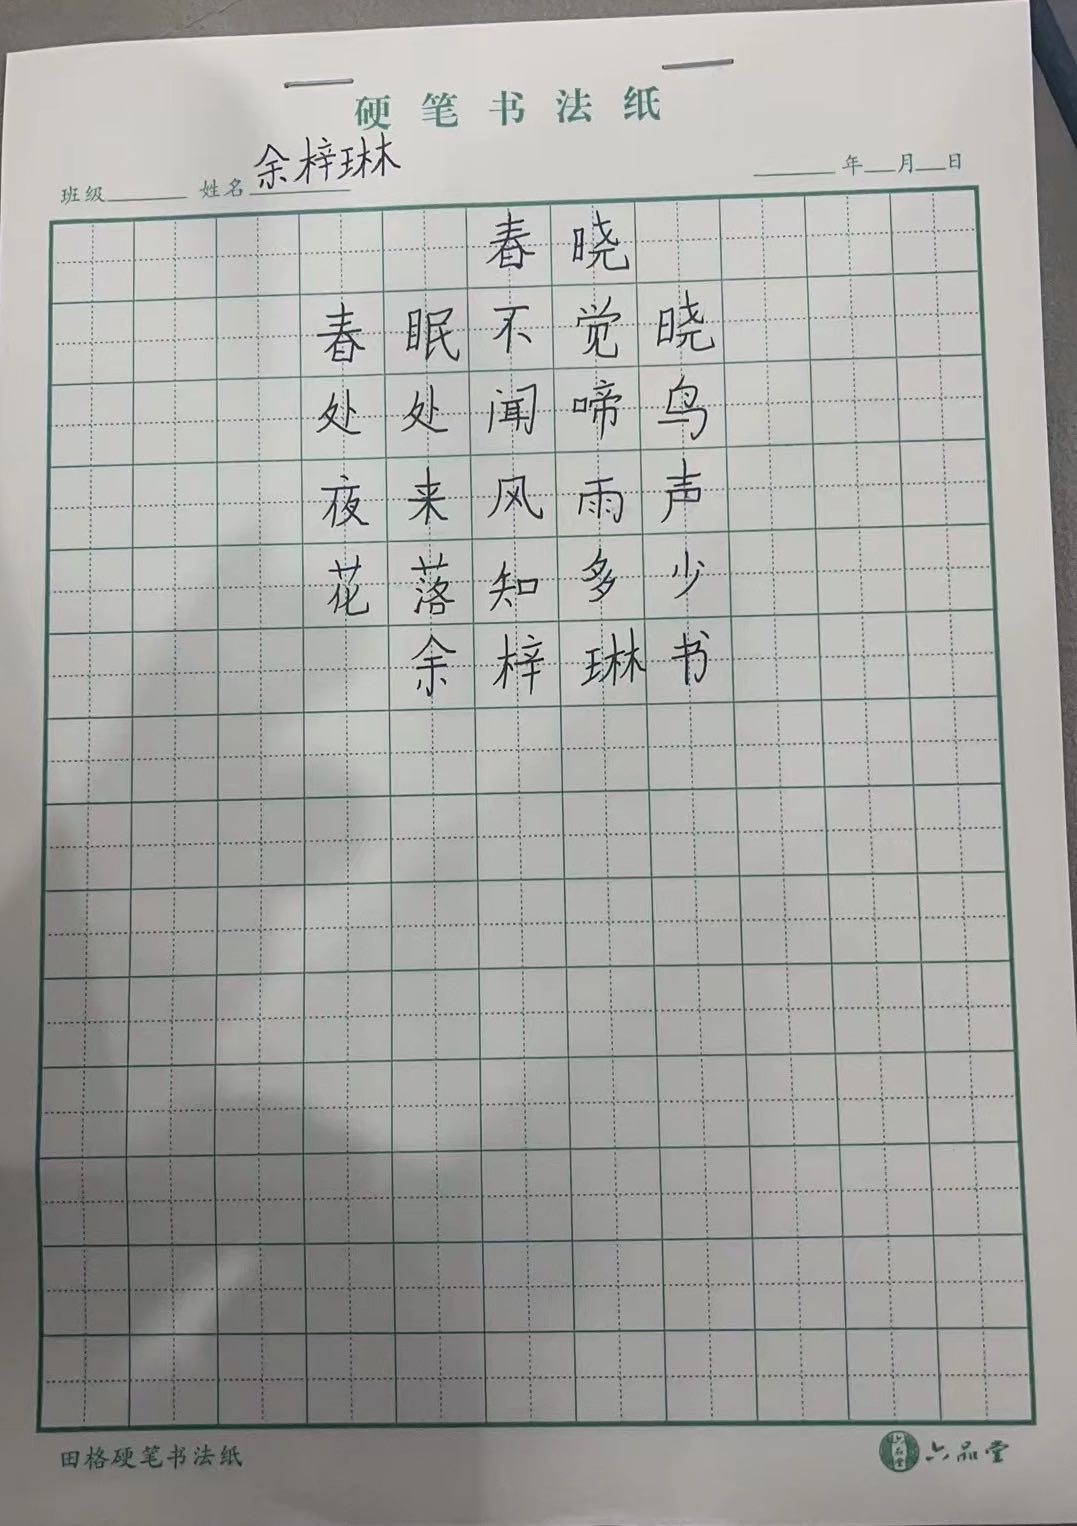 硬笔书法纸
班级 姓名 余梓琳 年 月 日
春晓
春眠不觉晓
处处闻啼鸟
夜来风雨声
花落知多少
余梓琳书
田格硬笔书法纸 六品堂 六品堂